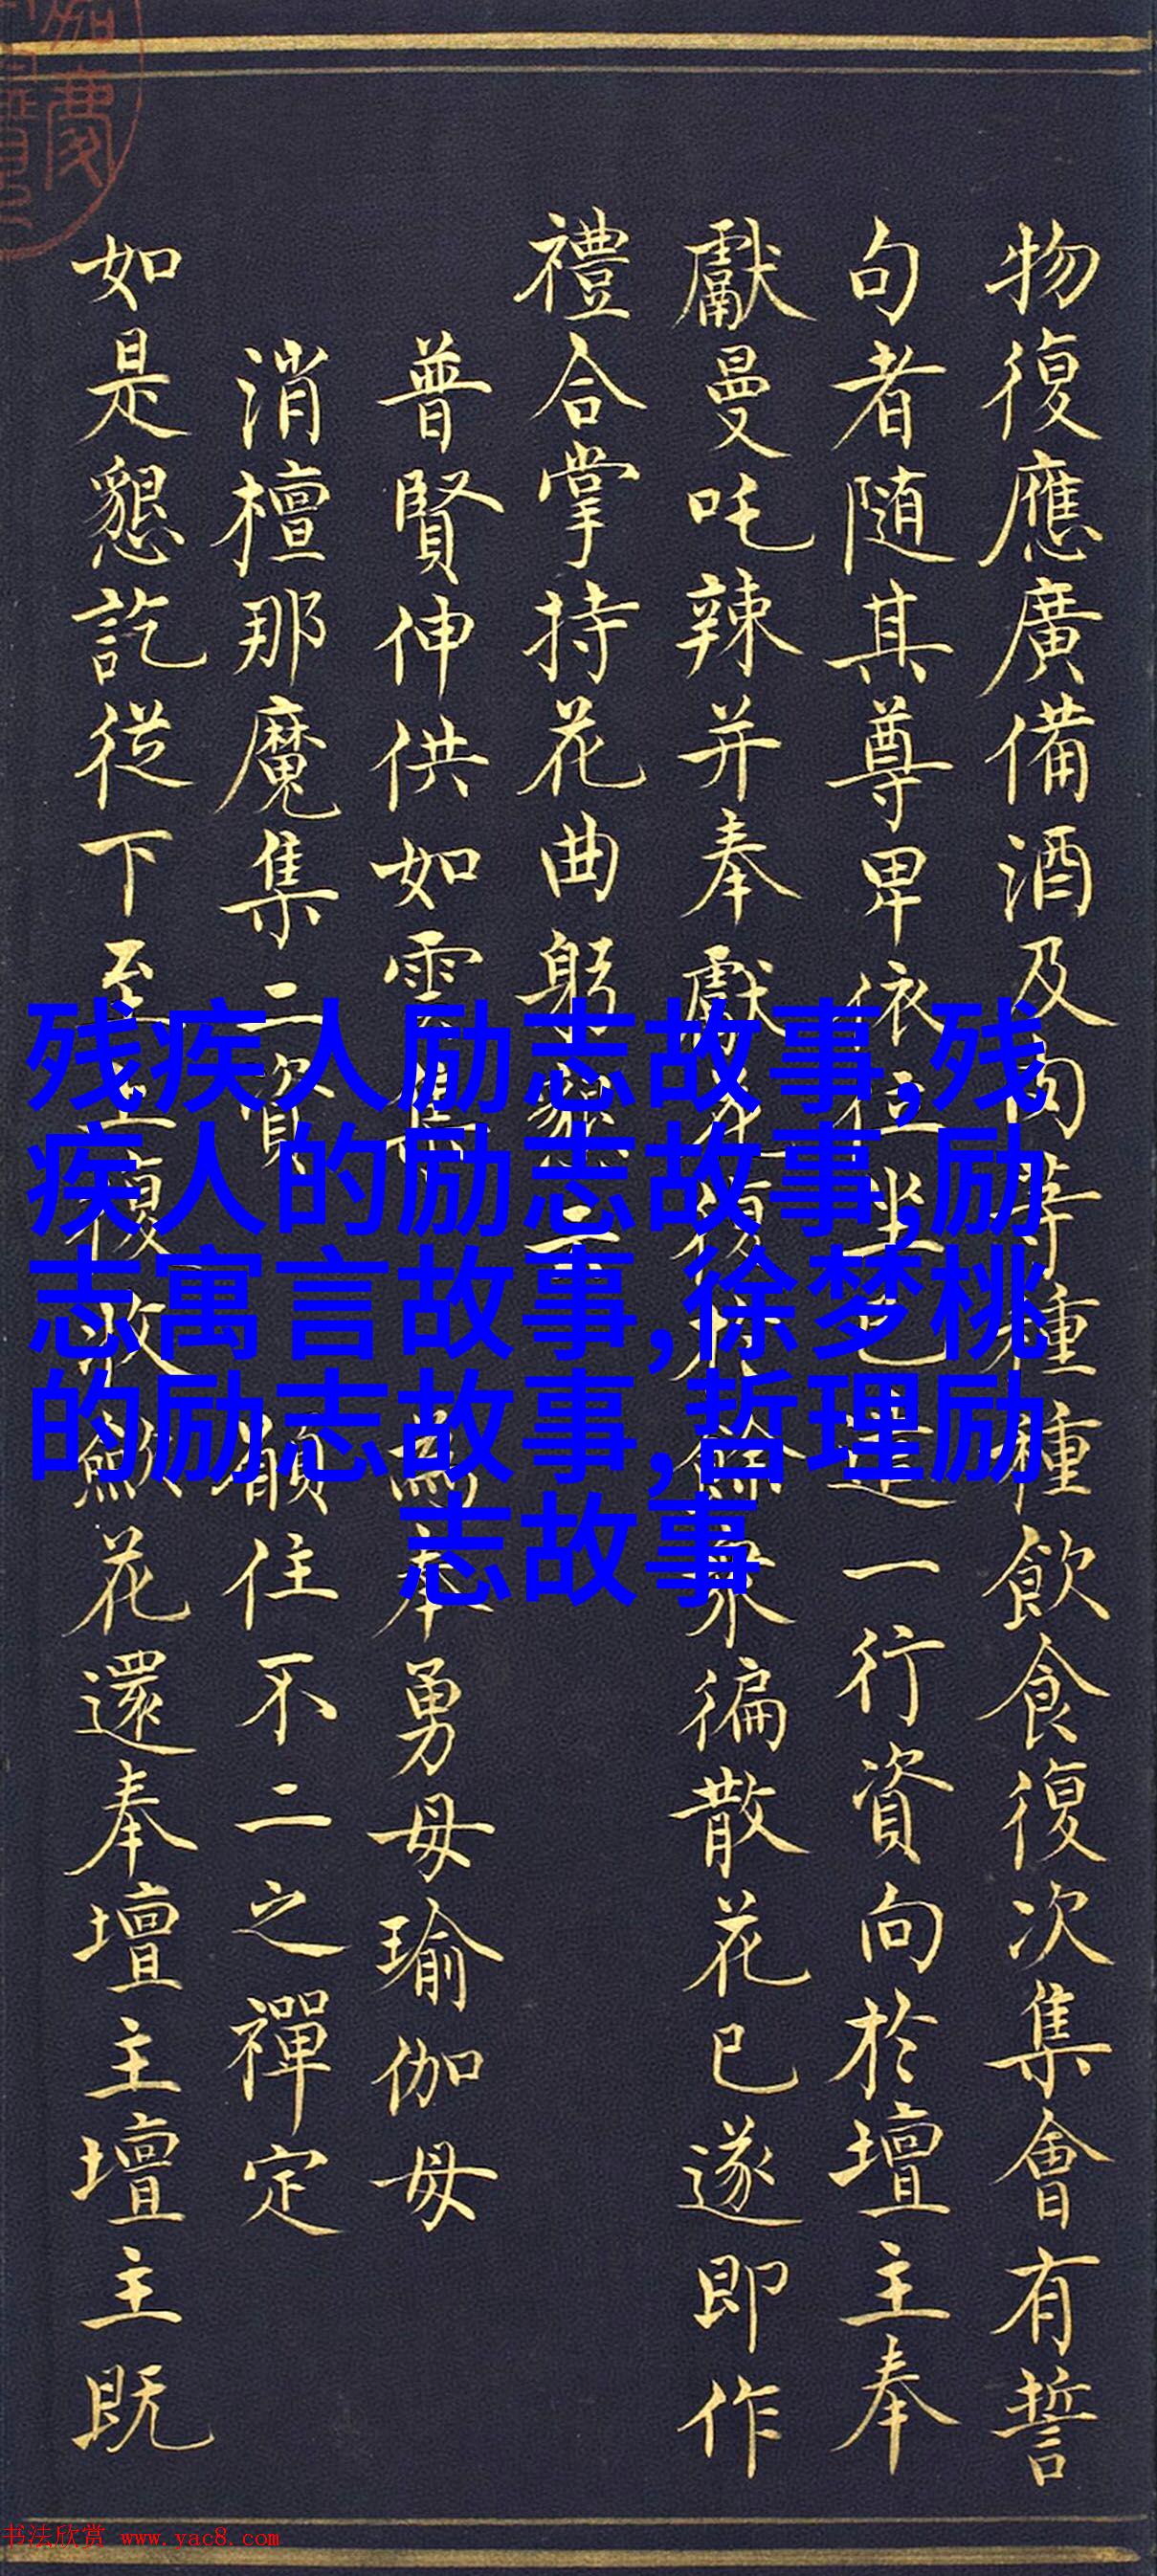 物復應廣備酒及肉等種種飲食復次集會有誓
句者随其尊卑依位坐已一行資向於壇主奉
獻曼吒辣并奉獻復餘眾徧散花已遂即作
禮合掌持花曲躬懇云
普賢伸供如雲集 為奉勇母瑜伽母
消檀那魔集二資 願住不二之禪定
如是懇訖從下至上復收歛花還奉壇主壇主既
残疾人励志故事,残
疾人的励志故事,励
志寓言故事,徐梦桃
的励志故事,哲理励
志故事
书法欣赏 www.yac8.com